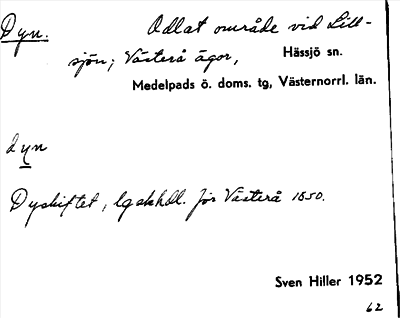 Dyn. Odlat område vid Lill-
sjön; Västerå ägor, Hässjö sn.
Medelpads ö. doms. tg, Västernorrl. län.
dyn
Dyskiftet, lgaskhdl. för Västerå 1850.
Sven Hiller 1952
62